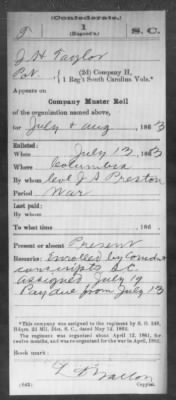 (Confederate.)
9 1 S. C.
(Hagood's.)
J H Taylor
Pvt, (2d) Company H,
1 Reg't South Carolina Vols.*
Appears on
Company Muster Roll
of the organization named above,
for July & Aug, 1863
Enlisted:
When July 13, 1863
Where Columbia
By whom Col J S Preston
Period War
Last paid:
By whom
To what time , 186
Present or absent Present
Remarks: Enrolled by Comdt
conscripts S.C.
assigned July 19
Pay due from July 13
*This company was assigned to the regiment by S. O.
The regiment was organized about April 12, 1861, for
twelve months, and was re-organized for the war in April, 1862.
Book mark:
(642)
Copyist.